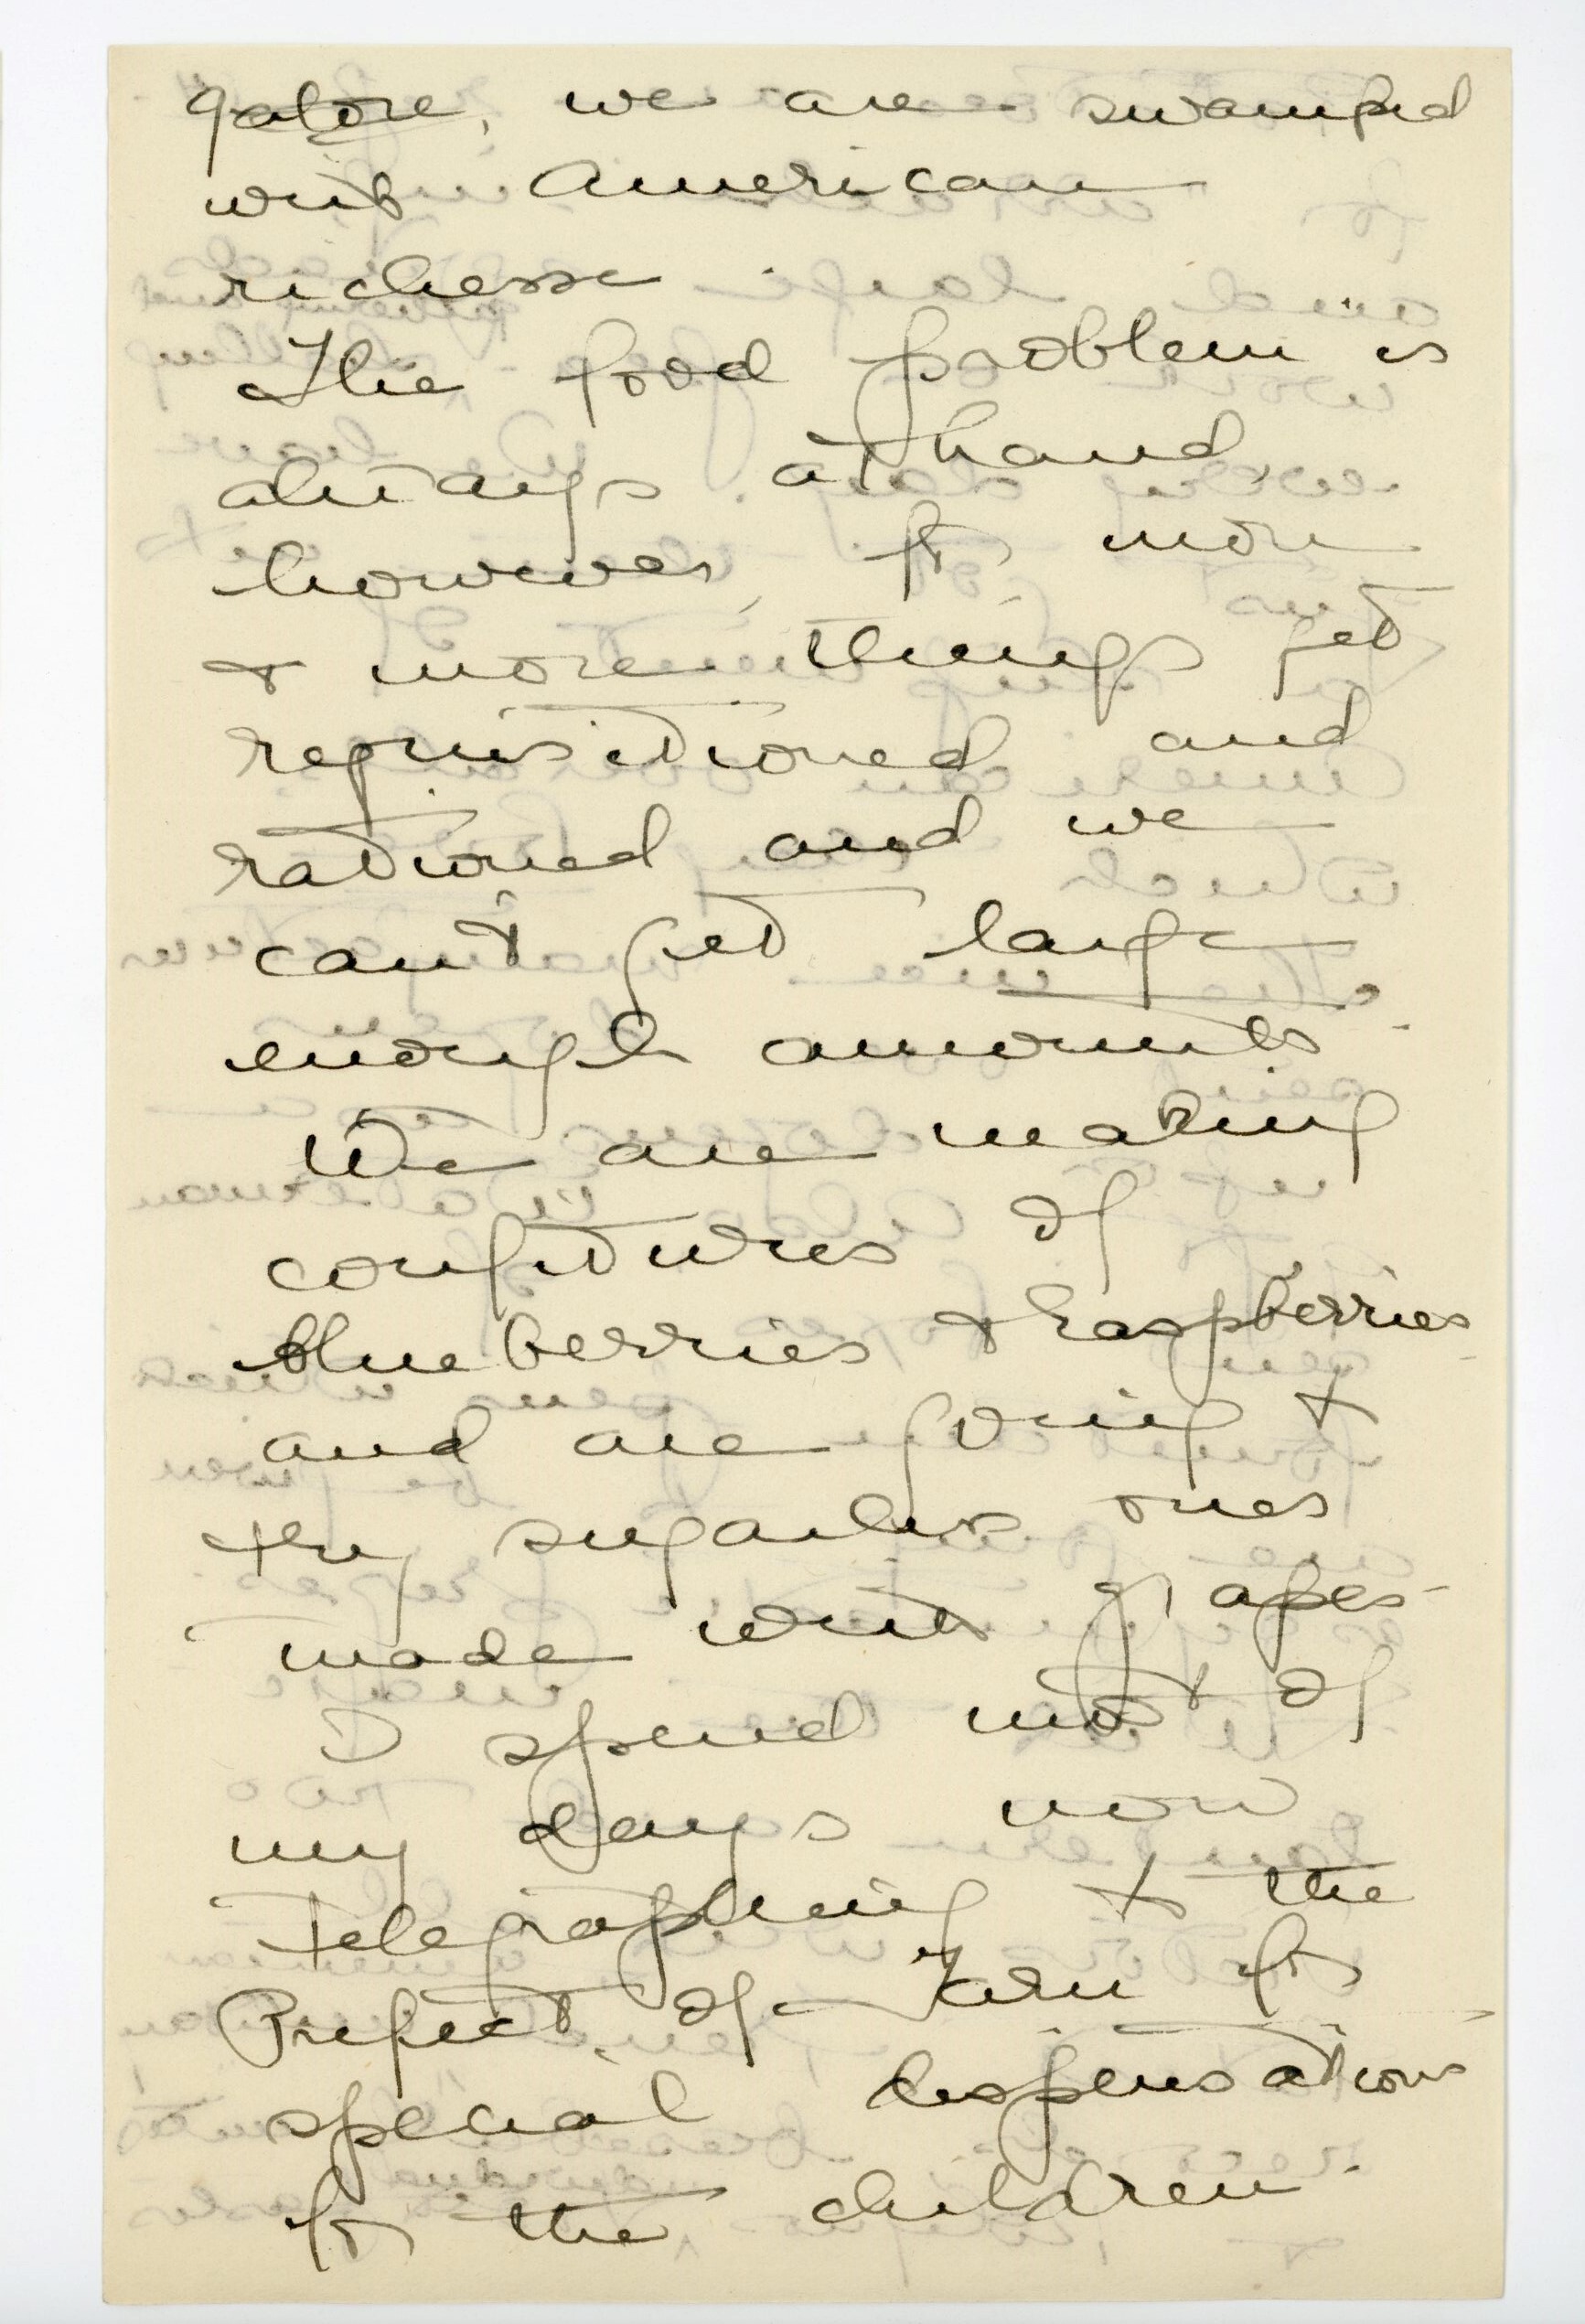 galore, we are swamped
with American
richesse.
The food problem is
always at hand,
however, for more
& more things get
requisitioned and
rationed and we
can't get large
enough amounts.
We are making
confitures of
blueberries & raspberries
and are going to
try sugarless ones
made with grapes -
I spend most of
my days now
telegraphing to the
Prefect of Tarn for
special dispensations
for the children